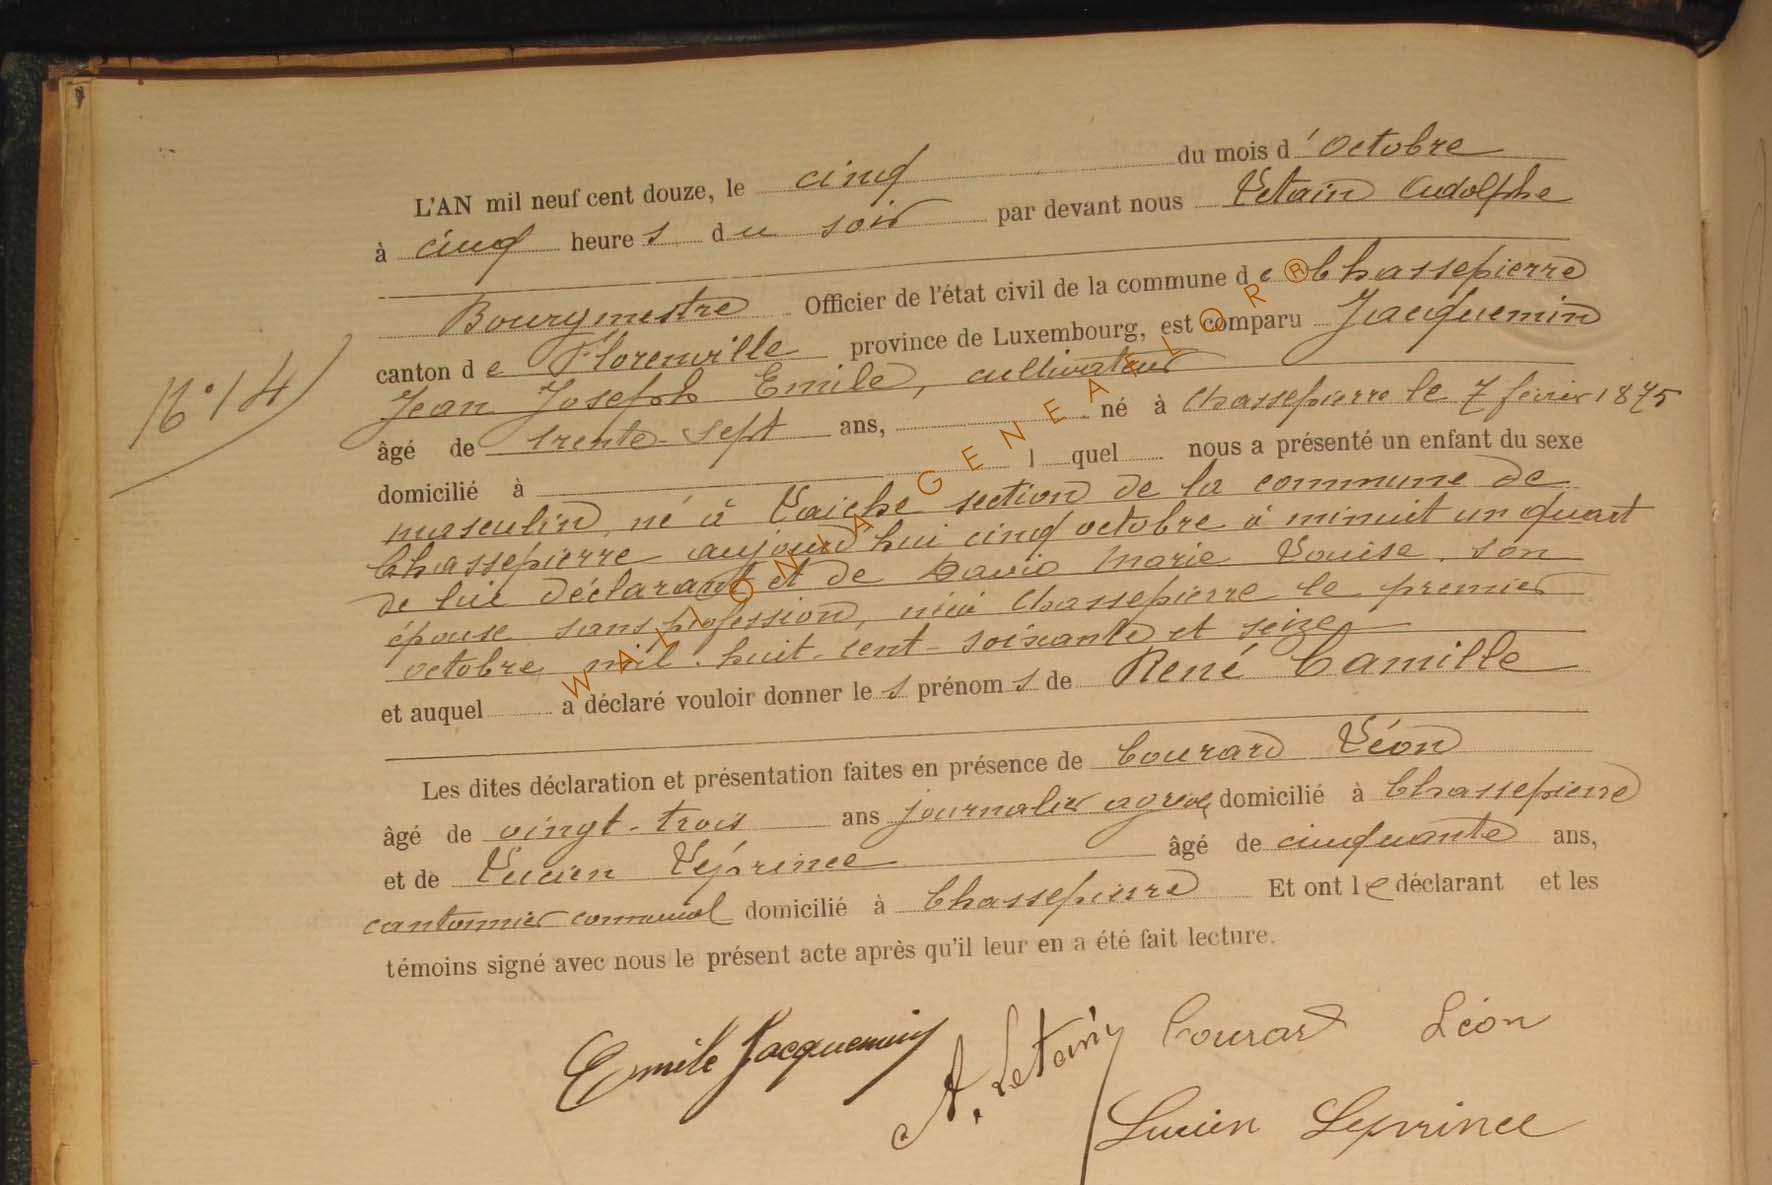 L'AN mil neuf cent douze, le cinq du mois d'Octobre
à cinq heures du soir par devant nous Letain Adolphe
Bourgmestre Officier de l'état civil de la commune de Chassepierre
canton de Florenville province de Luxembourg, est comparu Jacquemin
N° 14
Jean Joseph Emile, cultivateur
âgé de trente-sept ans, né à Chassepierre le 7 février 1875
domicilié à l quel nous a présenté un enfant du sexe
masculin, né à Laiche section de la commune de
Chassepierre aujourd'hui cinq octobre à minuit un quart
de lui déclarant et de David Marie Louise, son
épouse sans profession, née à Chassepierre le premier
octobre mil-huit-cent-soixante et seize
et auquel a déclaré vouloir donner les prénoms de René Camille
Les dites déclaration et présentation faites en présence de Courard Léon
âgé de vingt-trois ans journalier agricole domicilié à Chassepierre
et de Lucien Leprince âgé de cinquante ans,
cantonnier communal domicilié à Chassepierre Et ont le déclarant et les
témoins signé avec nous le présent acte après qu'il leur en a été fait lecture.
Emile Jacquemin A. Letain Courard Léon
Lucien Leprince
WALLONIA GENEAFLOR®